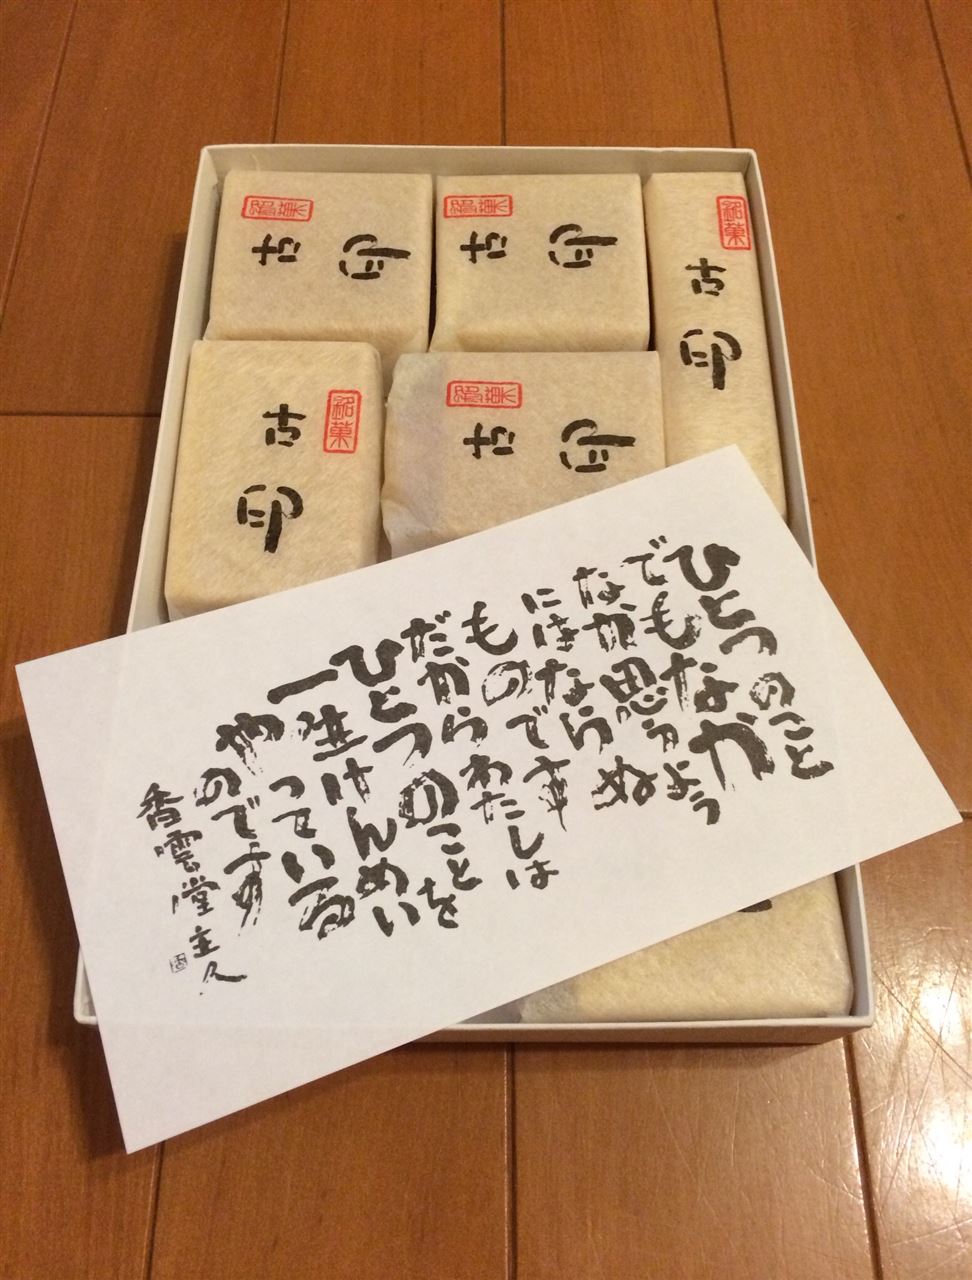 銘菓
古印
銘菓
古印
銘菓
古印
銘菓
古印
銘菓
古印
ひとつのこと
でもなかなか
なか思うよう
にはならぬ
ものです
だからわたしは
ひとつのことを
一生けんめい
やっている
のです
香雲堂主人